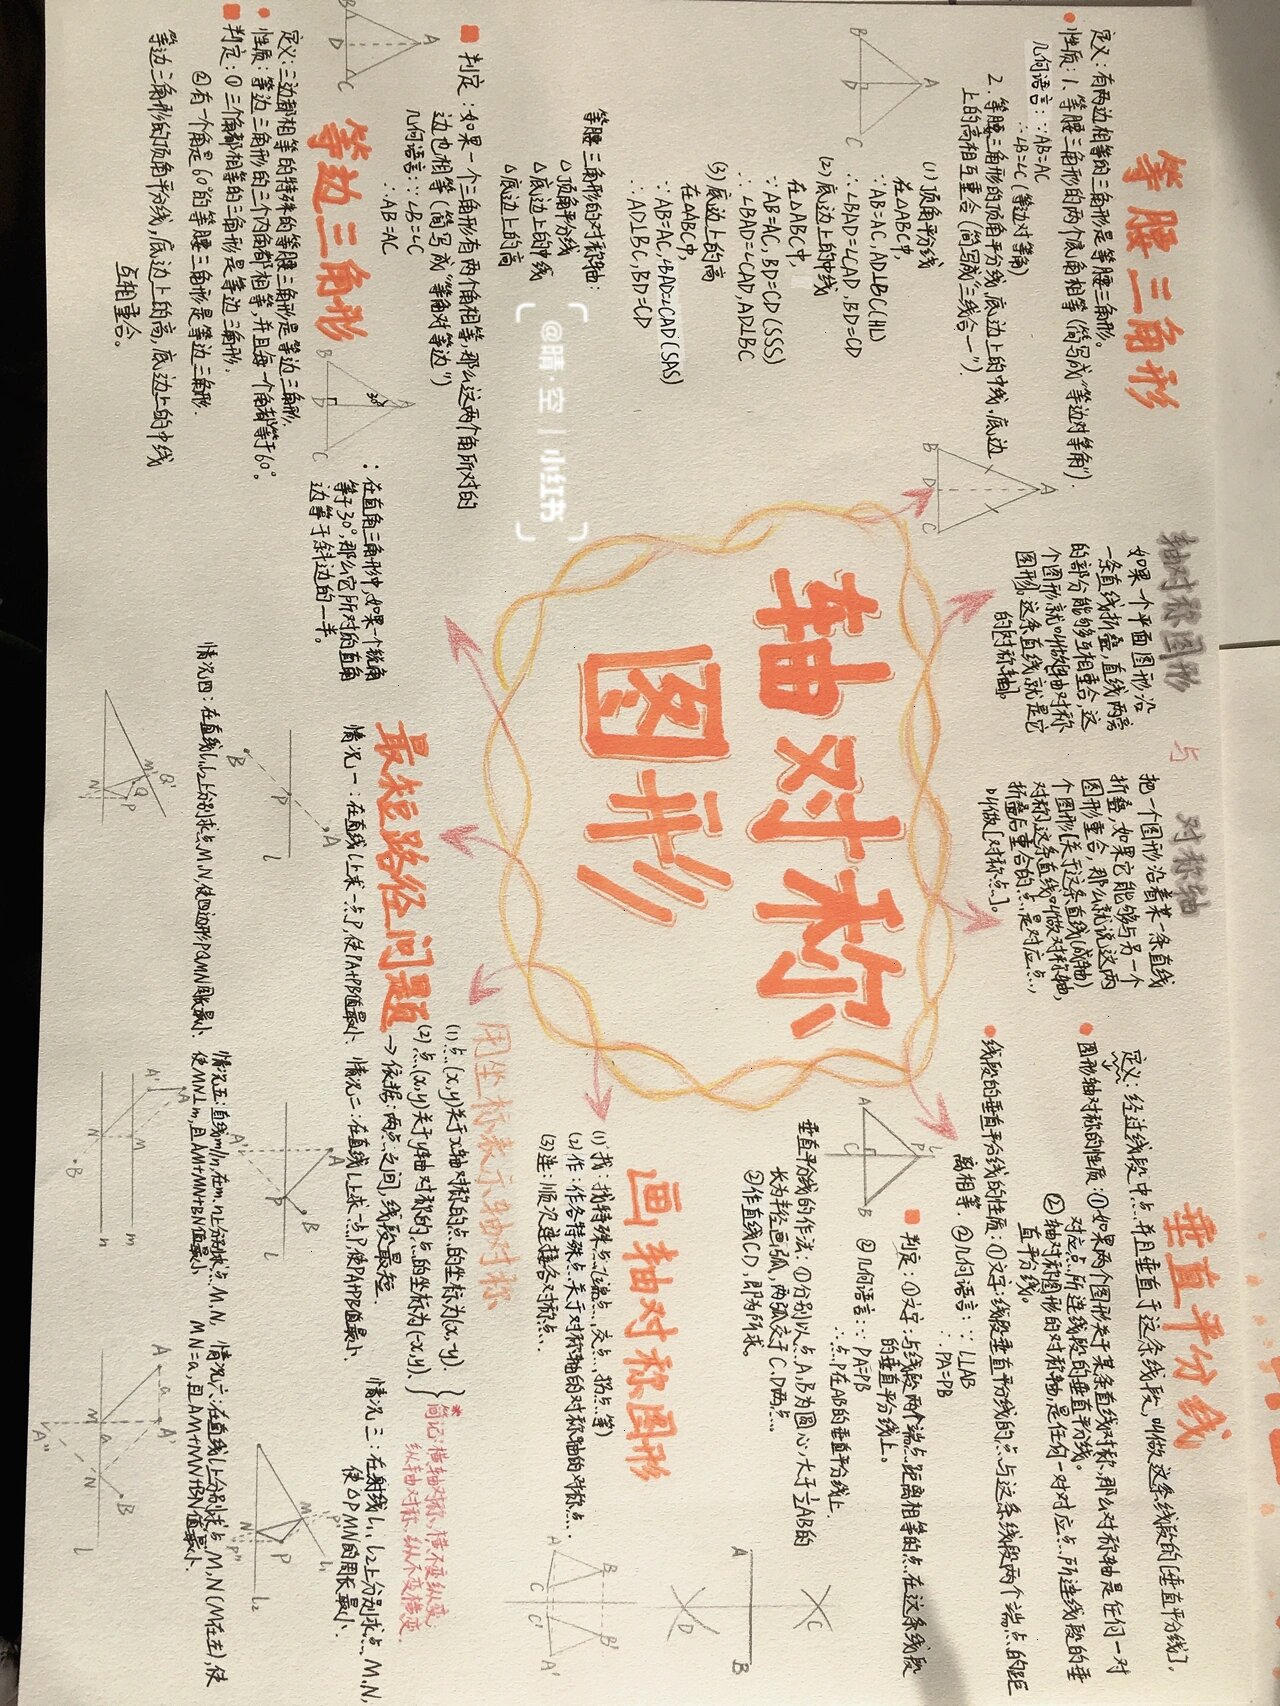 轴对称
图形
等腰三角形
定义：有两边相等的三角形是等腰三角形。
性质：1、等腰三角形的两个底角相等（简写成“等边对等角”）.
几何语言：∵AB=AC
∴∠B=∠C（等边对等角）
2、等腰三角形的顶角平分线，底边上的中线，底边
上的高相互重合（简写成“三线合一”）.
(1) 顶角平分线
在△ABC中,
∵AB=AC,AD⊥BC(HL)
∴∠BAD=∠CAD,BD=CD
(2) 底边上的中线
在△ABC中,
∵AB=AC,BD=CD(SSS)
∴∠BAD=∠CAD,AD⊥BC
(3) 底边上的高
在△ABC中,
∵AB=AC,∠BAD=∠CAD(SAS)
∴AD⊥BC,BD=CD
等腰三角形的对称轴:
△顶角平分线
△底边上的中线
△底边上的高
判定：如果一个三角形有两个角相等,那么这两个角所对的
边也相等（简写成“等角对等边”）
几何语言：∵∠B=∠C
∴AB=AC
等边三角形
定义：三边都相等的特殊的等腰三角形是等边三角形.
性质：等边三角形的三个内角都相等,并且每一个角都等于60°。
判定：①三个角都相等的三角形是等边三角形.
②有一个角是60°的等腰三角形是等边三角形.
等边三角形的顶角平分线，底边上的高，底边上的中线
互相重合。
：在直角三角形中,如果一个锐角
等于30°,那么它所对的直角
边等于斜边的一半。
轴对称图形 与 对称轴
如果一个平面图形沿
一条直线折叠,直线两旁
的部分能够互相重合,这
个图形就叫做[轴对称
图形],这条直线就是它
的[对称轴]。
把一个图形沿着某一条直线
折叠,如果它能够与另一个
图形重合,那么就说这两
个图形[关于这条直线(成轴)
对称],这条直线叫做对称轴,
折叠后重合的点是对应点,
叫做[对称点]。
垂直平分线
定义：经过线段中点并且垂直于这条线段,叫做这条线段的[垂直平分线]。
图形轴对称的性质：①如果两个图形关于某条直线对称,那么对称轴是任何一对
对应点所连线段的垂直平分线。
②轴对称图形的对称轴,是任何一对对应点所连线段的垂
直平分线。
线段的垂直平分线的性质：①文字：线段垂直平分线的点与这条线段两个端点的距
离相等. ②几何语言：∵l⊥AB
∴PA=PB
判定：①文字：与线段两个端点距离相等的点在这条线段
的垂直平分线上。
②几何语言：∵PA=PB
∴点P在AB的垂直平分线上
垂直平分线的作法：①分别以点A,B为圆心,大于½AB的
长为半径画弧,两弧交于C.D两点
②作直线CD,即为所求。
画轴对称图形
(1)找：找特殊点(端点,交点,拐点等)
(2)作：作各特殊点关于对称轴的对称轴的对称点.
(3)连：顺次连接各对称点.
用坐标表示轴对称
(1)点(x,y)关于x轴对称的点的坐标为(x,-y).
(2)点(x,y)关于y轴对称的点的坐标为(-x,y).
简记:横轴对称,横不变纵变;
纵轴对称,纵不变横变.
最短路径问题
→依据：两点之间,线段最短.
情况一：在直线l上求一点P,使PA+PB值最小.
情况二：在直线l上求一点P,使PA+PB值最小.
情况三：在射线l₁、l₂上分别求点M,N,
使△PMN的周长最小.
情况四：在直线l₁,l₂上分别求点M,N,使四边形PQMN周长最小.
情况五：直线m//n,在m、n上分别求点M.N,
使MN⊥m,且AM+MN+BN值最小
情况六：在直线l上分别求点M,N(M在左),使
MN=a,且AM+MN+BN值最小.
@晴·空｜小红书